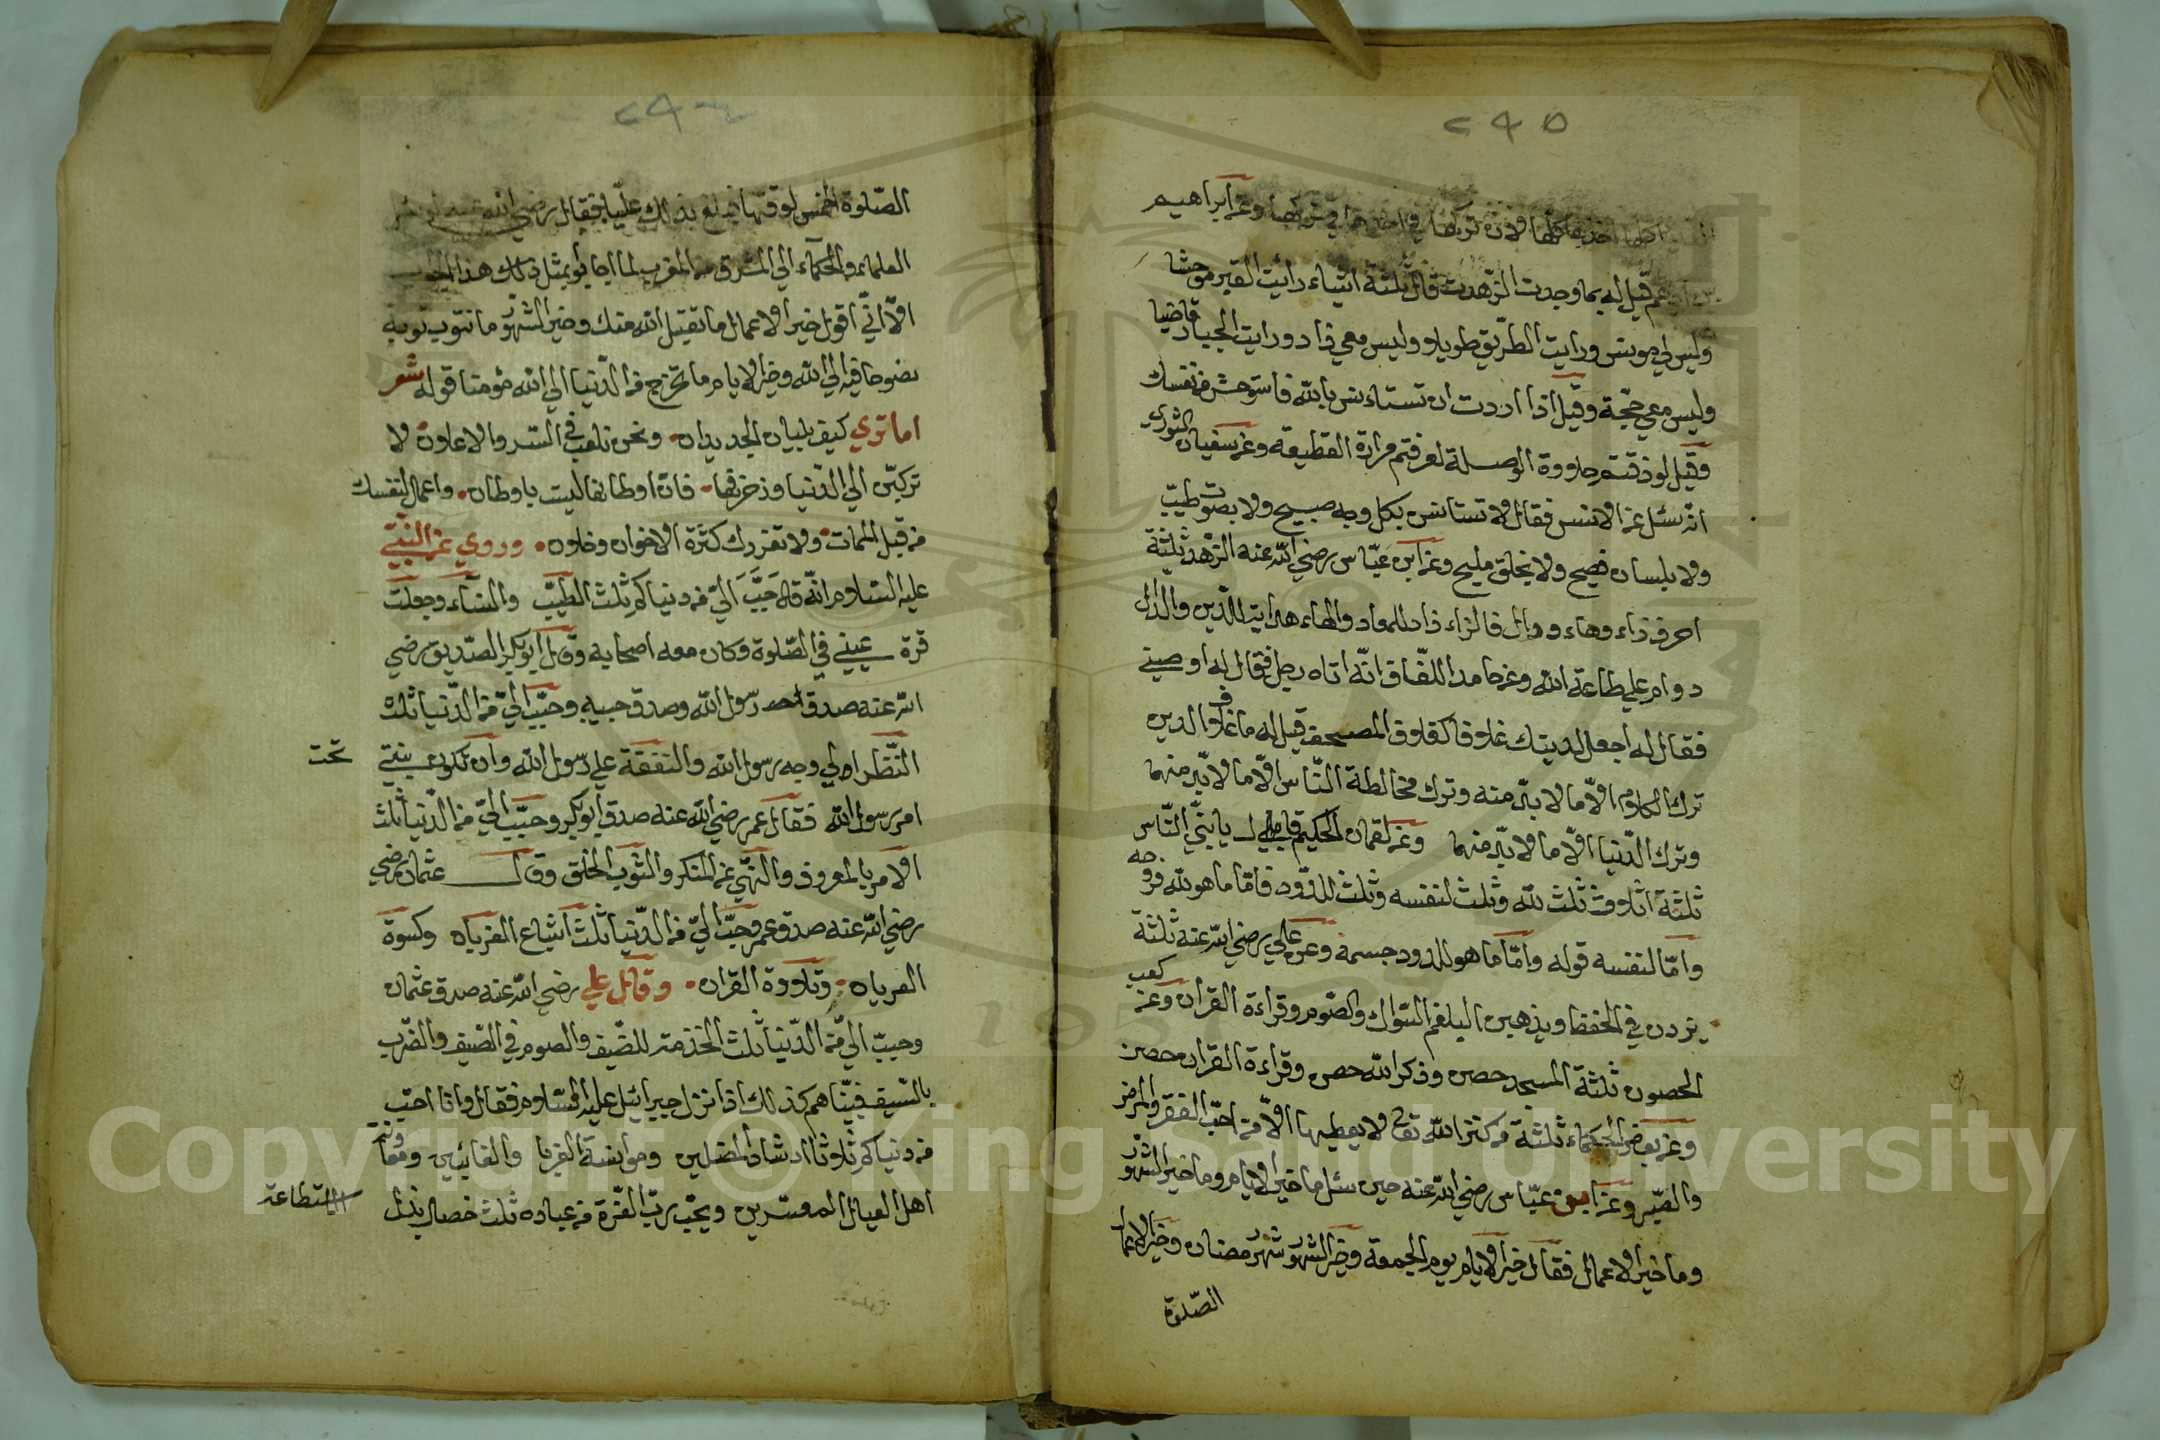 ٢٩٥
اخذها كلها لان تركها في اخذها وعن ابراهيم
بن ادهم قيل له بما وجدت الزهدت قال ثلثة اشياء رائيت القبر موحشا
وليس لي مونس ورايت الطريق طويلا وليس معي زاد ورايت الجبار قاضيا
وليس معي حجة وقيل اذا اردت ان تستانس بالله فاستوحش من نفسك
وقيل لو ذقتم حلاوة الوصلة لعرفتم مرارة القطيعة وعن سفيان الثوري
انه سئل عن الانس فقال لا تستانس بكل وجه صبيح ولا بصوت طيب
ولا بلسان فصيح ولا بخلق مليح وعن ابن عباس رضي الله عنه الزهد ثلثة
احرف زاء وهاء ودال فالزاء زاد للمعاد والهاء هدايت للدين والدال
دوام علي طاعة الله وعن حامد اللفاف انه اتاه رجل فقال له اوصيني
فقال له اجعل لدينك غلافا كغلاف المصحف قيل له ما غلاف الدين
ترك الكلام الا ما لا بد منه وترك مخالطة الناس الا ما لا بد منها
وترك الدنيا الا ما لا بد منها وعن لقمان الحكيم قال يا بني الناس
ثلثة اثلاث ثلث لله وثلث لنفسه وثلث للدود فاما ما هو لله فروحه
واما لنفسه قوله واما ما هو للدود جسمه وعن علي رضي الله عنه ثلثة
يزدن في الحفظ ويذهبن البلغم السواك والصوم وقراءة القران وعن كعب
الحصون ثلثة المسجد حصن وذكر الله حصن وقراءة القران حصن
وعن بعض الحكماء ثلثة من كنز الله تع لا يعطيها الا من احب الفقر والمرض
والصبر وعن ابن عباس رضي الله عنه حين سئل ما خير الايام وما خير الشهور
وما خير الاعمال فقال خير الايام يوم الجمعة وخير الشهور شهر رمضان وخير الاعمال
الصلوة
٢٩٦
الصلوة الخمس لوقتها فبلغ بذلك عليا فقال رضي الله عنه لو سئل
العلماء والحكماء الي المشرق من المغرب لما اجابوا بمثل ذلك هذا الجواب
الا اني اقول خير الاعمال ما تقبل الله منك وخير الشهور ما تتوب توبة
نصوحا فيه الي الله وخير الايام ما تخرج من الدنيا الي الله مؤمنا قوله شعر
اما تري كيف يبليان الجديدان ونحن نلعب في السر والاعلان لا
تركبن الي الدنيا وزخرفها فان اوطانها ليست باوطان واعمال لنفسك
من قبل الممات ولا تغررك كثرة الاخوان وخلان وروي عن النبي
عليه السلام انه قال حبب الي من دنياكم ثلث الطيب والنساء وجعلت
قرة عيني في الصلوة وكان معه اصحابه وقال ابو بكر الصديق رضي
الله عنه صدق رسول الله وصدق حبيبه وحبب الي من الدنيا ثلث
النظر الي وجه رسول الله والنفقة علي رسول الله وان تكون بنتي تحت
امر رسول الله فقال عمر رضي الله عنه صدق ابو بكر وحبب الي من الدنيا ثلث
الامر بالمعروف والنهي عن المنكر والثوب الخلق وقال عثمان رضي
رضي الله عنه صدق عمر وحبب الي من الدنيا ثلث اشباع العريان وكسوة
العريان وتلاوة القران وقال علي رضي الله عنه صدق عثمان
وحبب الي من الدنيا ثلث الخذمة للضيف والصوم في الصيف والضرب
بالسيف فبينا هم كذلك اذا نزل جبرائيل عليه السلام فقال وانا احب
من دنياكم ثلاثا ارشاد المضلين وموانسة الغربا والغائبين ومعاونة
اهل العيال المعسرين ويحب رب العزة من عباده ثلث خصال بذل
الستطاعة